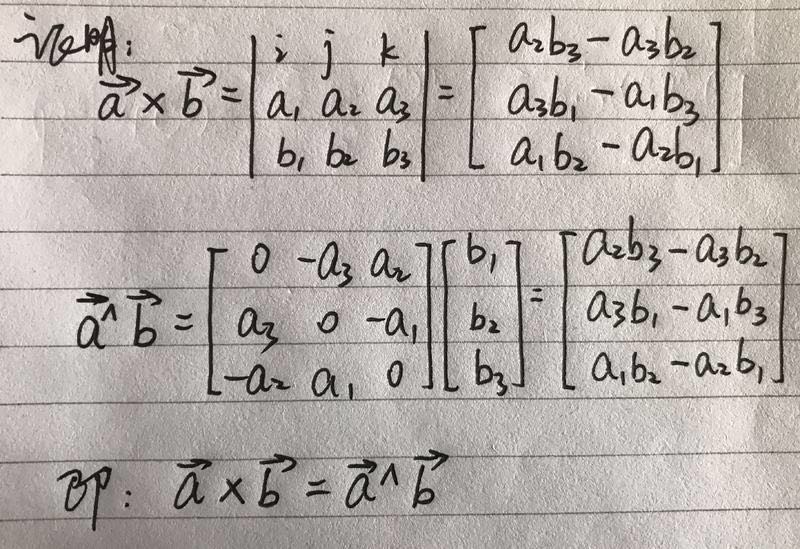 证明:
$\vec{a} \times \vec{b} = \begin{vmatrix} i & j & k \\ a_1 & a_2 & a_3 \\ b_1 & b_2 & b_3 \end{vmatrix} = \begin{bmatrix} a_2b_3 - a_3b_2 \\ a_3b_1 - a_1b_3 \\ a_1b_2 - a_2b_1 \end{bmatrix}$
$\vec{a}^{\wedge} \vec{b} = \begin{bmatrix} 0 & -a_3 & a_2 \\ a_3 & 0 & -a_1 \\ -a_2 & a_1 & 0 \end{bmatrix} \begin{bmatrix} b_1 \\ b_2 \\ b_3 \end{bmatrix} = \begin{bmatrix} a_2b_3 - a_3b_2 \\ a_3b_1 - a_1b_3 \\ a_1b_2 - a_2b_1 \end{bmatrix}$
即: $\vec{a} \times \vec{b} = \vec{a}^{\wedge} \vec{b}$